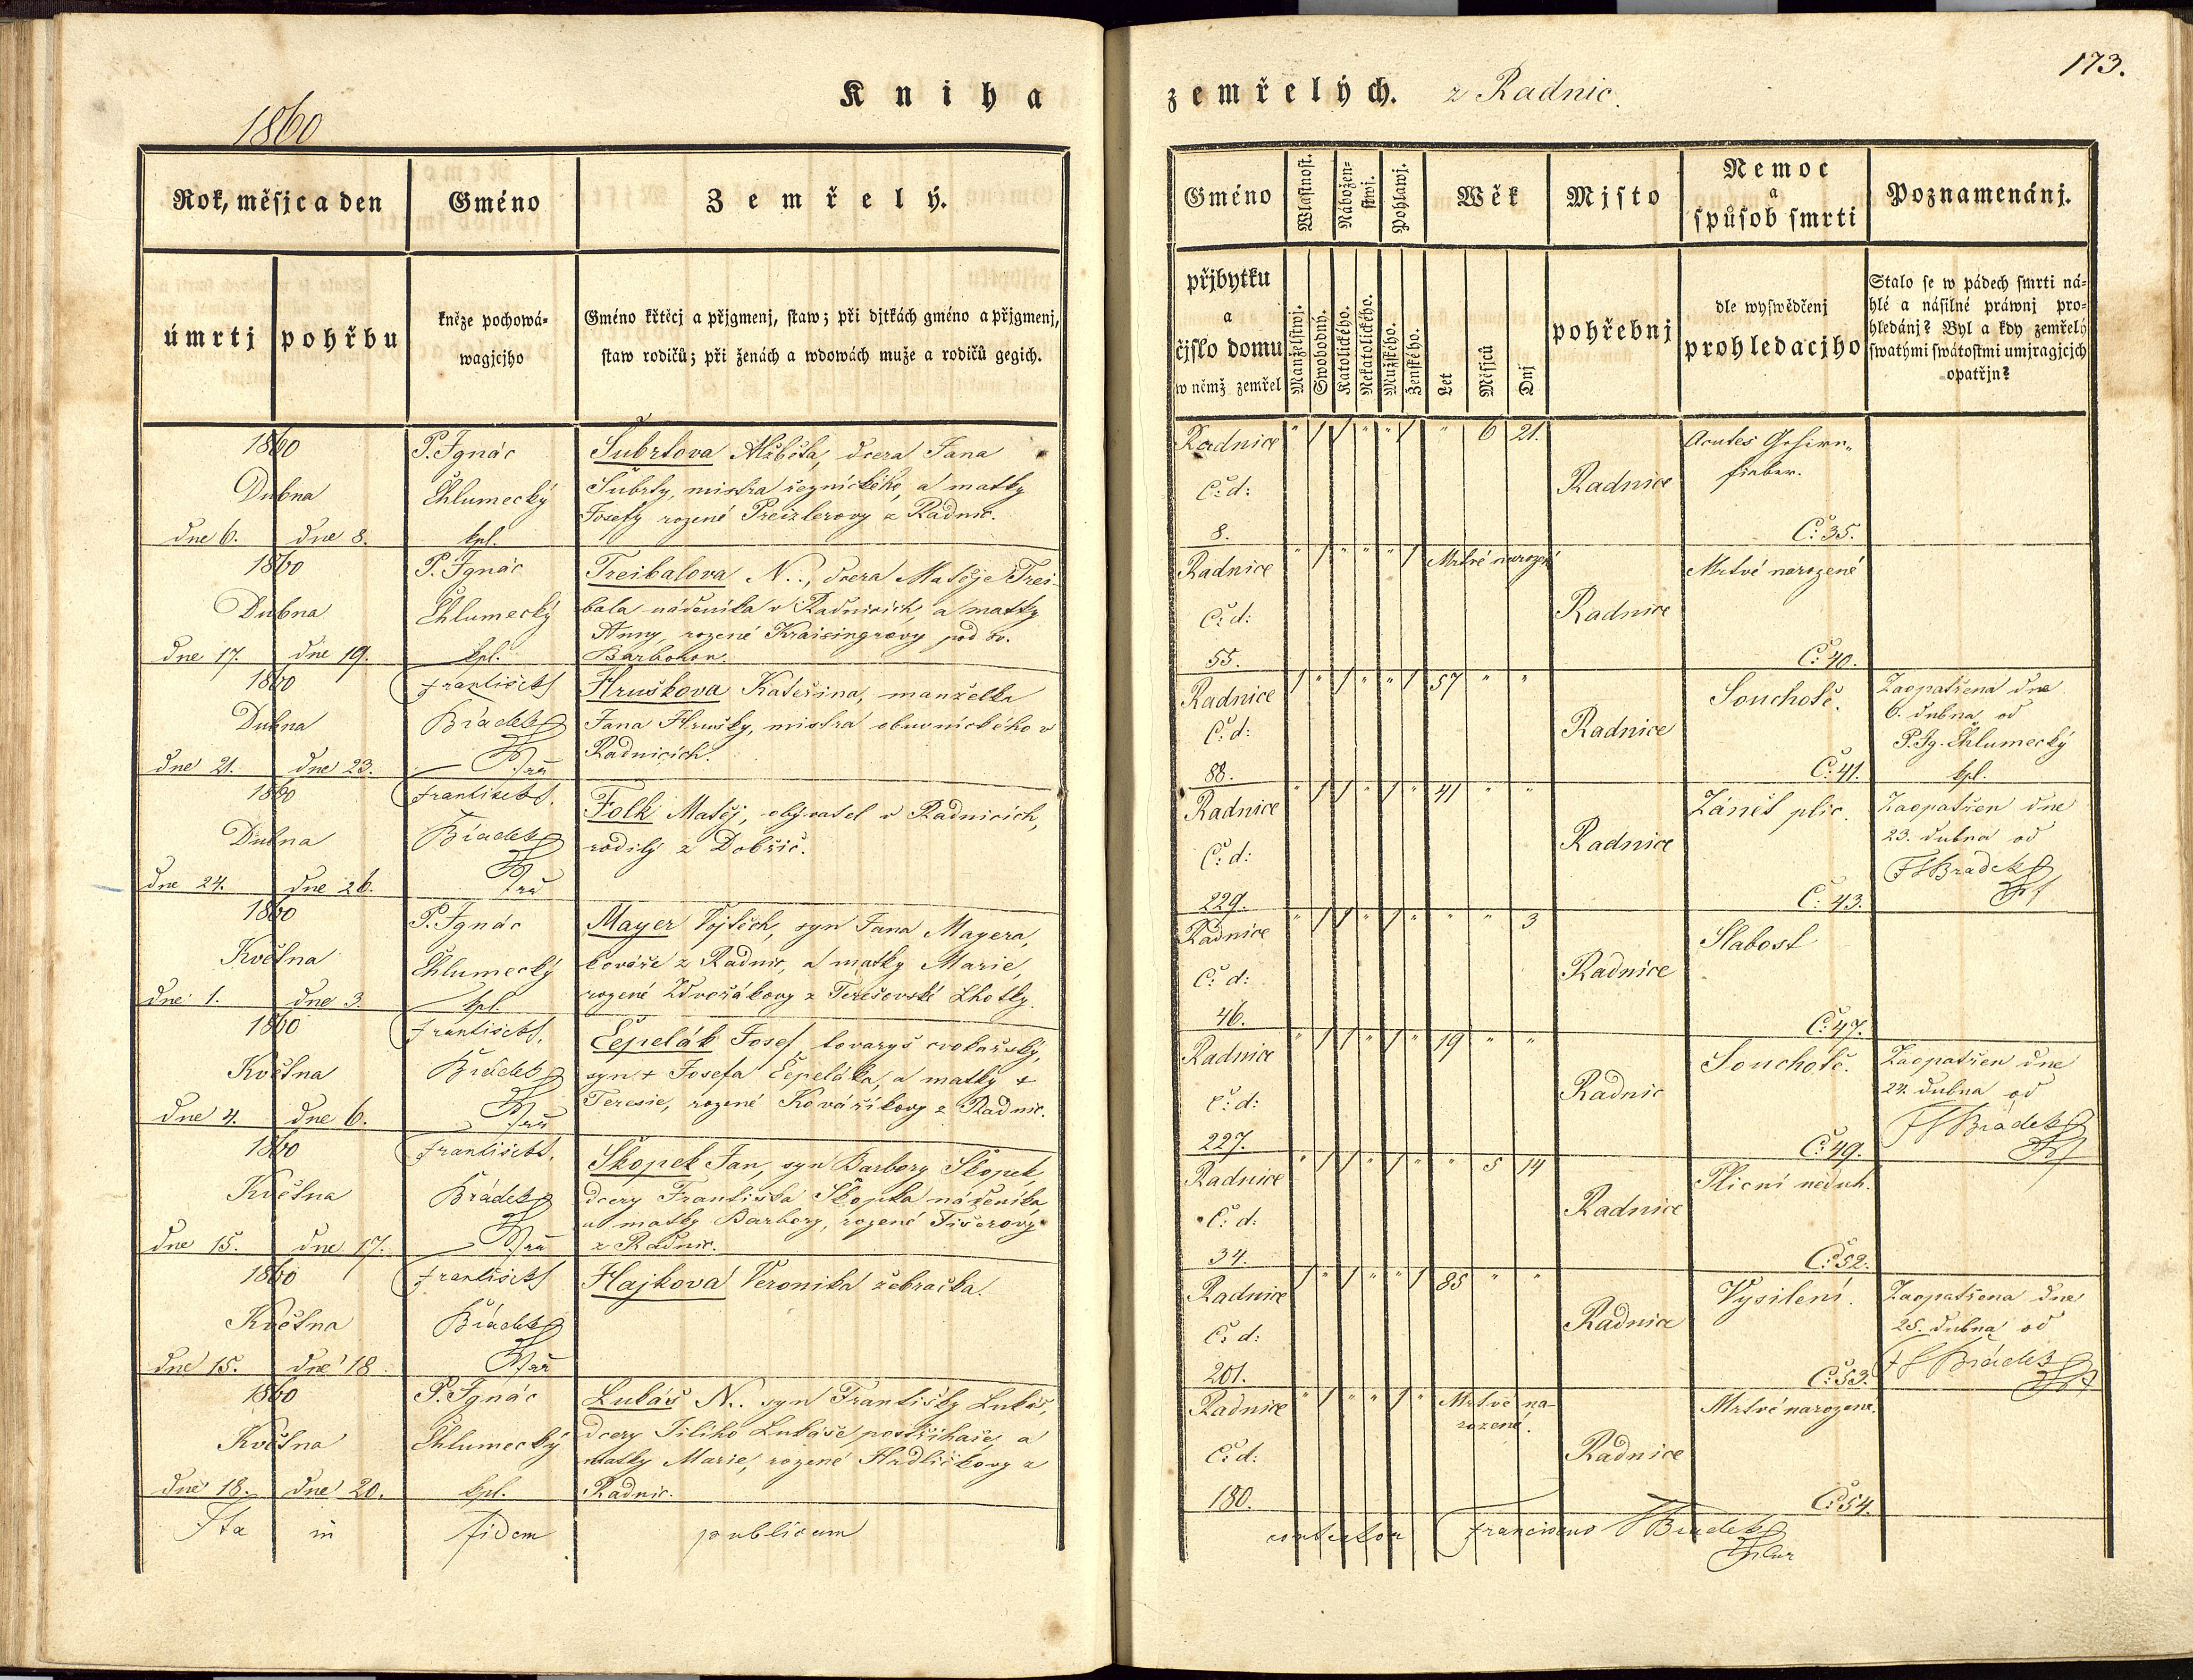 173.
Kniha
zemřelých. z Radnic.
1860
Rok, měsjc a den
Gméno
Zemřelý.
úmrtj
pohřbu
kněze pochowá-
wagjcjho
Gméno křtěcj a přjgmenj, staw; při djtkách gméno a přjgmenj,
staw rodičů; při ženách a wdowách muže a rodičů gegich.
Gméno
Wlastnost.
Nábožen-
stwj.
Pohlawj.
Wěk
Mjsto
Nemoc
a
spůsob smrti
Poznamenánj.
přjbytku
a
čjslo domu
w němž zemřel
Manželstwj.
Swobodný.
Katolického.
Nekatolického.
Mužského.
Ženského.
Let
Měsjců
Dnj
pohřebnj
dle wyswědčenj
prohledacjho
Stalo se w pádech smrti ná-
hlé a násilné práwnj pro-
hledánj? Byl a kdy zemřelý
swatými swátostmi umjragjcjch
opatřjn?
1860
Dubna
dne 6. dne 8.
P. Ignác
Chlumecký
kpl.
Šubrtova Alžběta, dcera Jana
Šubrty, mistra řeznického, a matky
Josefy rozené Preizlerovy z Radnic.
Radnice
Č: d:
8.
" 1 1 " " 1 " 6 21.
Radnice
Acutes Gehirn-
fieber.
Č: 35.
1860
Dubna
dne 17. dne 19.
P. Ignác
Chlumecký
kpl.
Treibalova N.., dcera Matěje Trei-
bala nádeníka v Radnicích, a matky
Anny, rozené Kraisingrovy pod sv.
Barborou.
Radnice
Č: d:
55.
" 1 " " " 1 Mrtvé narozené
Radnice
Mrtvé narozené
Č: 40.
1860
Dubna
dne 21. dne 23.
František
Brádek
Hruškova Kateřina, manželka
Jana Hrušky, mistra obuvnického v
Radnicích.
Radnice
Č: d:
88.
1 " 1 " " 1 57 " "
Radnice
Souchotě.
Č: 41.
Zaopatřena dne
6. dubna od
P. Ig. Chlumecký
kpl.
1860
Dubna
dne 24. dne 26.
František
Brádek
Folk Matěj, obývatel v Radnicích,
rodilý z Dobříč.
Radnice
Č: d:
229.
" 1 1 " 1 " 41 " "
Radnice
Zánět plic.
Č: 43.
Zaopatřen dne
23. dubna od
Brádek
1860
Května
dne 1. dne 3.
P. Ignác
Chlumecký
kpl.
Mayer Vojtěch, syn Jana Mayera,
kováře z Radnic, a matky Marie,
rozené Zdvořákovy z Terešovské Lhotky.
Radnice
Č: d:
46.
" 1 1 " 1 " " " 3
Radnice
Slabost
Č: 47.
1860
Května
dne 4. dne 6.
František
Brádek
Čepelák Josef tovaryš cvokařský,
syn + Josefa Čepeláka, a matky +
Teresie, rozené Kováříkovy z Radnic.
Radnice
Č: d:
227.
" 1 1 " 1 " 19 " "
Radnic
Souchotě.
Č: 49.
Zaopatřen dne
24. dubna od
Brádek
1860
Května
dne 15. dne 17.
František
Brádek
Skopek Jan, syn Barbory Skopek,
dcery Františka Skopka nádeníka,
a matky Barbory, rozené Fišerovy
z Radnic.
Radnice
Č: d:
34.
" 1 1 " 1 " " 5 14
Radnice
Plicní neduh.
Č: 52.
1860
Května
dne 15. dne 18.
František
Brádek
Hajková Veronika žebračka.
Radnice
Č: d:
201.
1 " 1 " " 1 85 " "
Radnice
Vysílení.
Č: 53.
Zaopatřena dne
25. dubna od
Brádek
1860
Května
dne 18. dne 20.
P. Ignác
Chlumecký
kpl.
Lukáš N.. syn Františky Lukáš,
dcery Jiliho Lukáše postřihače, a
matky Marie, rozené Hrdličkovy z
Radnic.
Radnice
Č: d:
180.
" 1 " " 1 " Mrtvé na-
rozené.
Radnice
Mrtvé narozené.
Č: 54.
Ita in fidem publicam contestor Franciscus Brádek